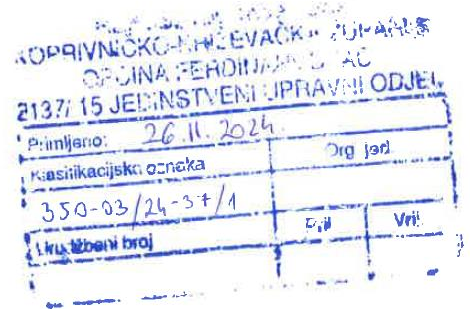 KOPRIVNIČKO-KRIŽEVAČKA ŽUPANIJA
OPĆINA FERDINANDOVAC
2137/15 JEDINSTVENI UPRAVNI ODJEL
Primljeno: 26.11.2024.
Klasifikacijska oznaka Org. jed.
350-03/24-37/1
Urudžbeni broj Pril Vrij.